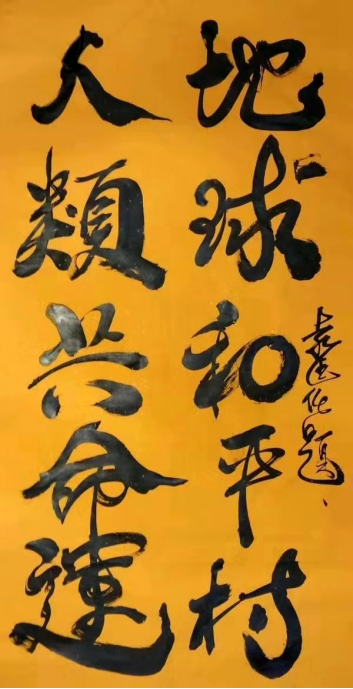 地球和平村
人類共命運
題